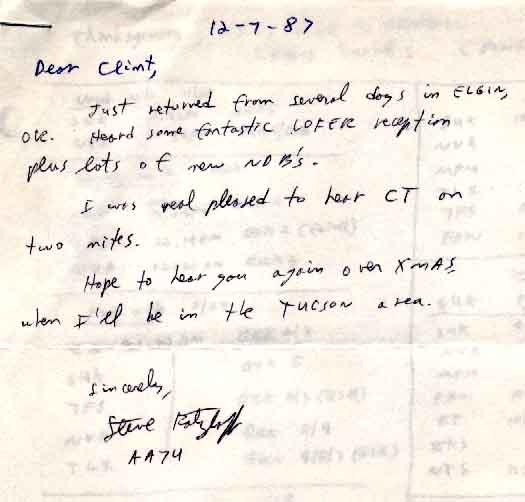 12-7-87
Dear Clint,
Just returned from several days in ELGIN,
ORE. Heard some fantastic LOFER reception
plus lots of new NDB's.
I was real pleased to hear CT on
two nites.
Hope to hear you again over XMAS,
when I'll be in the TUCSON area.
Sincerely,
Steve
AA7U